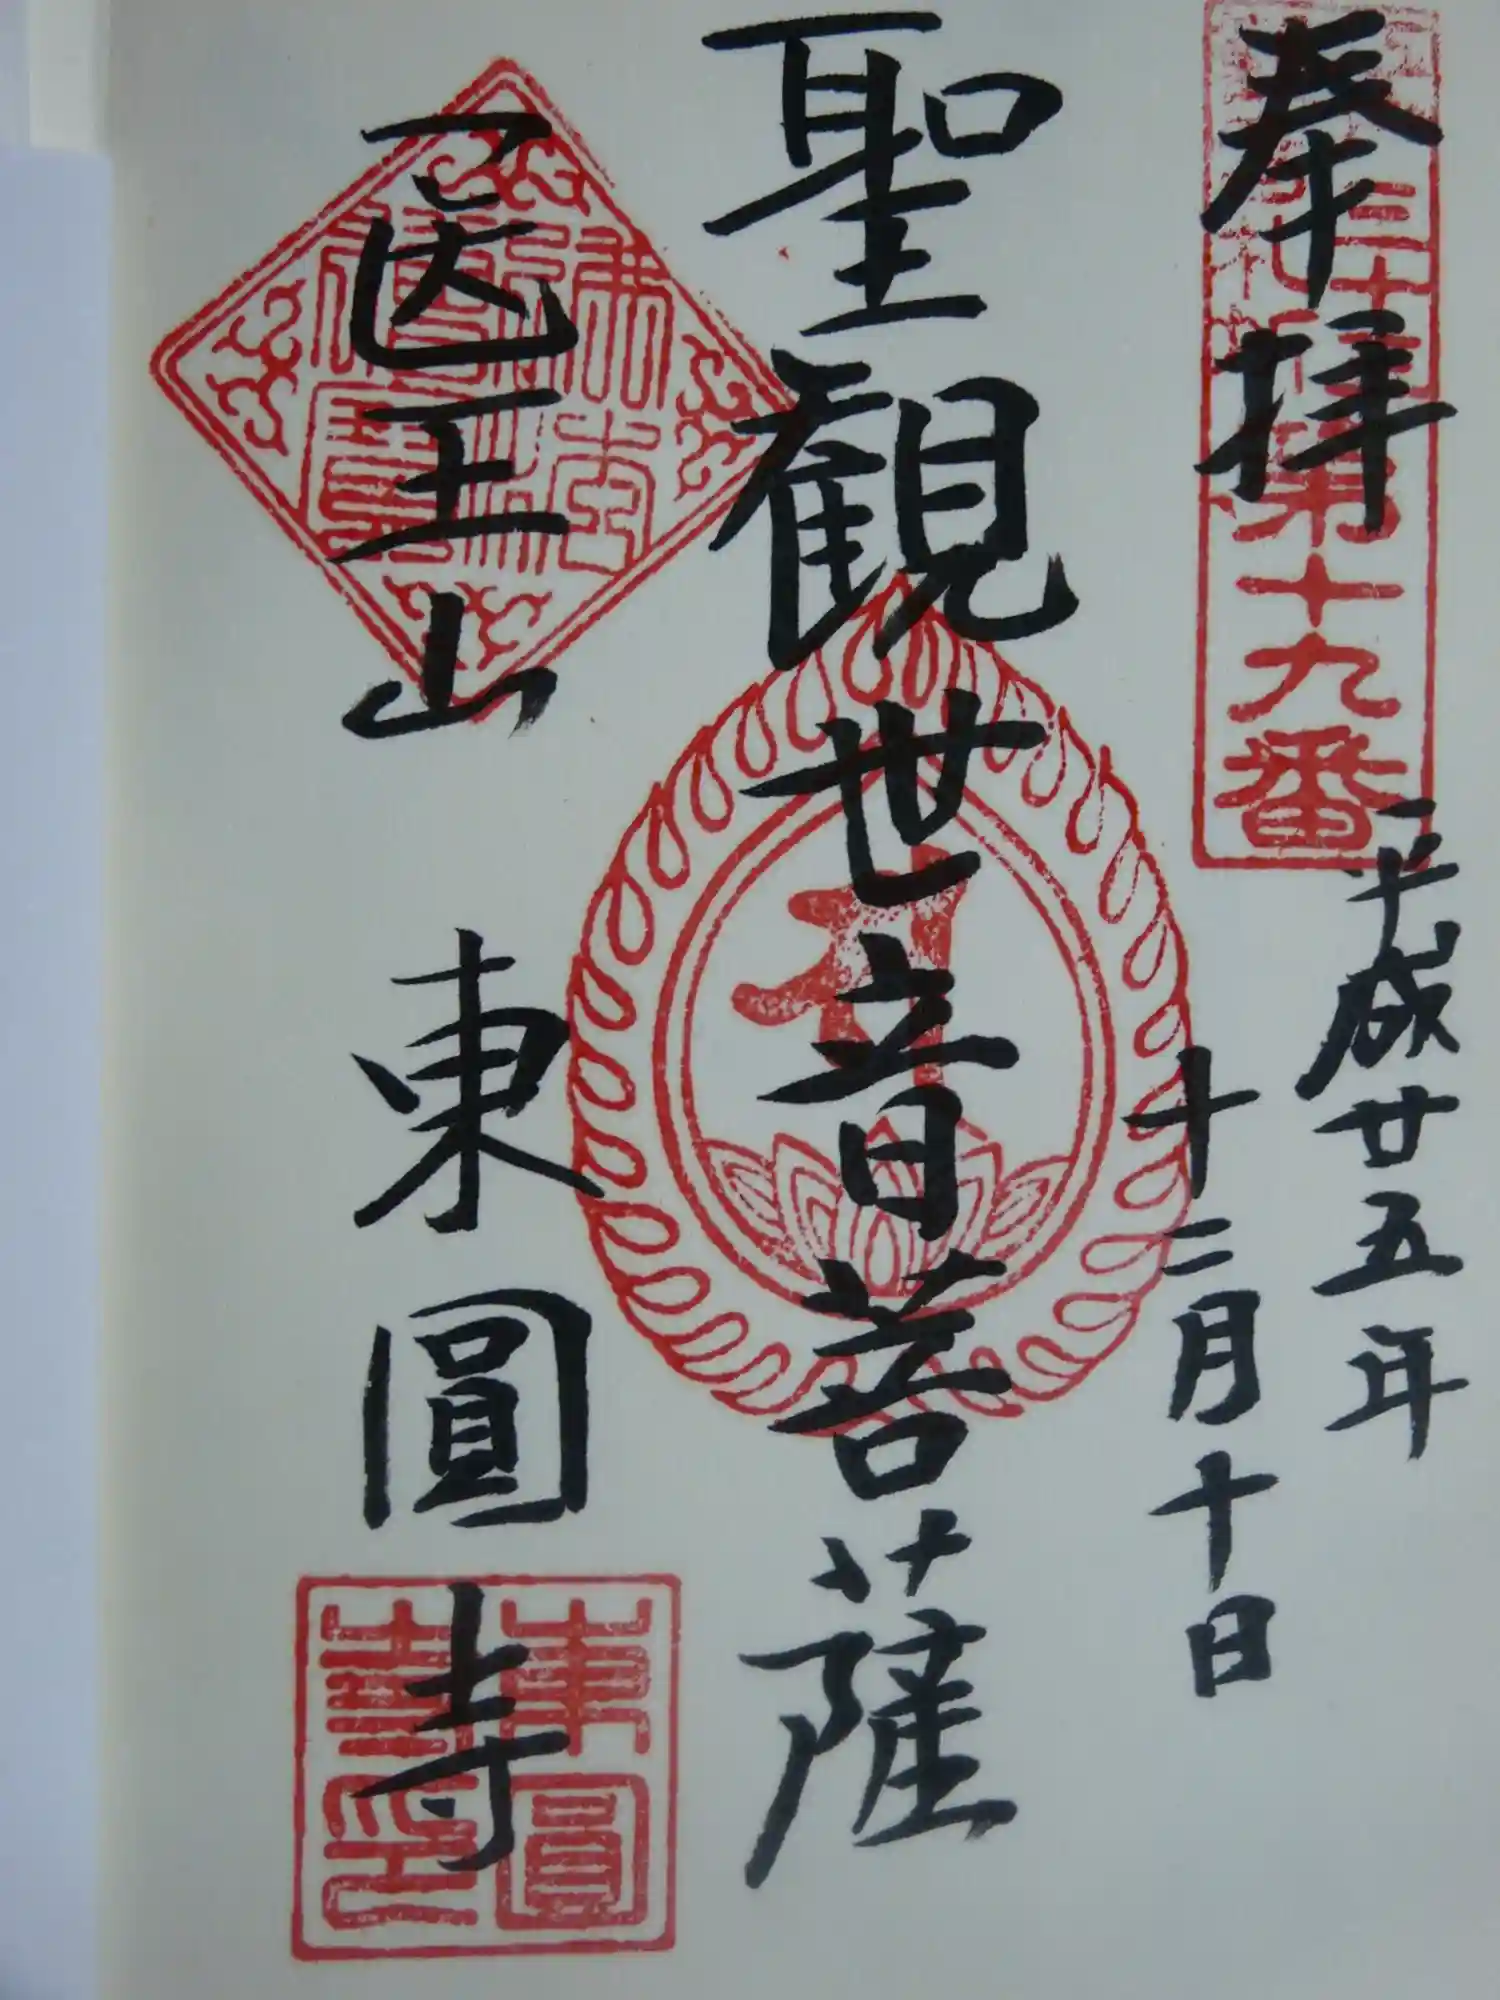 奉拝
第十九番
平成廿五年
十二月十日
聖観世音菩薩
医王山
東圓寺
東圓
寺印